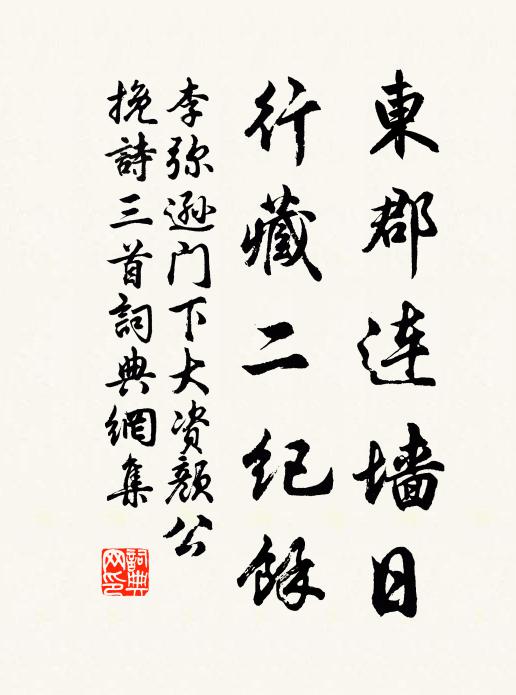 東郡连墙日
行藏二纪餘
李弥遜门下大资颜公
挽詩三首詞典網集
詞典网印